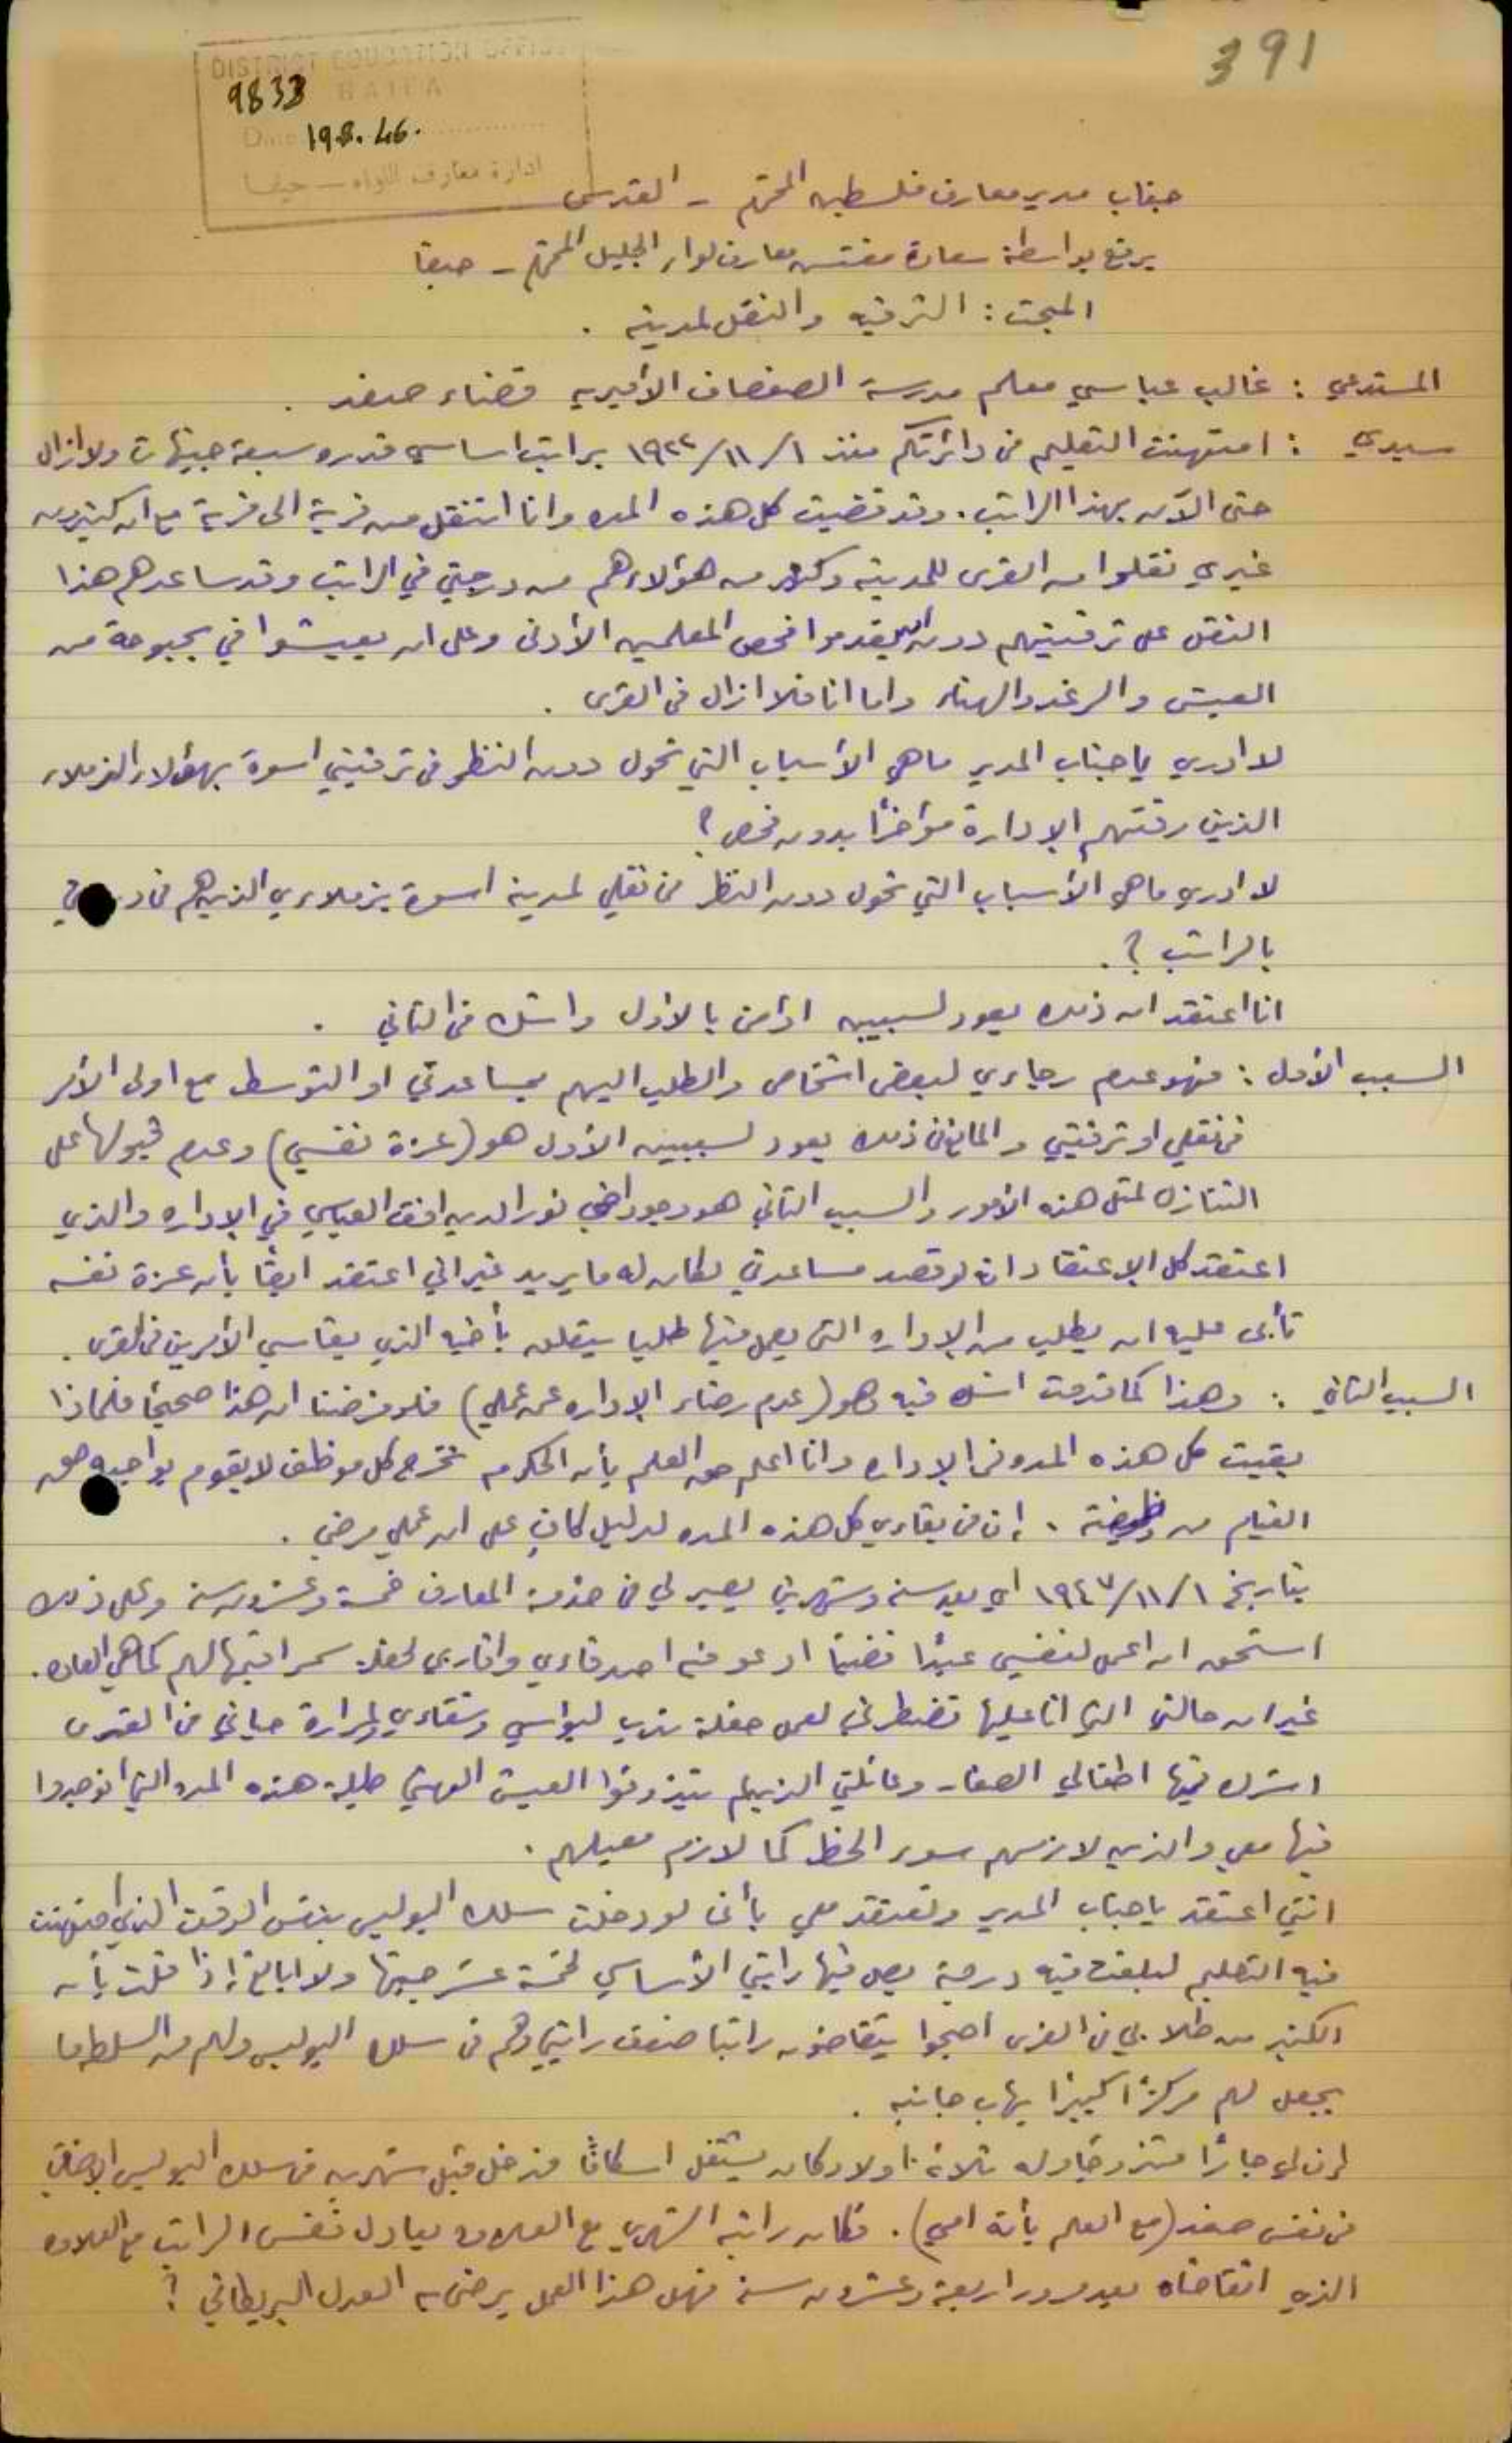 391
DISTRICT EDUCATION OFFICE
9833 HAIFA
Date 19.8.46.
ادارة معارف اللواء — حيفا
جناب مدير معارف فلسطين المحترم - القدس
يرفع بواسطة سعادة مفتش معارف لواء الجليل المحترم - حيفا
المبحث : الترقيه والنقل لمدينه .
المستدعي : غالب عباسي معلم مدرسة الصفصاف الأميريه قضاء صفد .
سيدي : امتهنت التعليم في دائرتكم منذ ١/١١/١٩٢٢ براتب اساسي قدره سبعة جنيهات ولا ازال
حتى الآن بهذا الراتب . وقد قضيت كل هذه المده وانا انتقل من قرية الى قرية مع ان كثيرين
غيري نقلوا من القرى للمدينه وكثير من هؤلاء هم من درجتي في الراتب وقد ساعدهم هذا
النقل على ترقيتهم دون ان يقدموا فحص المعلمين الأدنى وعلى ان يعيشوا في بحبوحة من
العيش والرغد والهناء واما انا فلا ازال في القرى .
لا ادري يا جناب المدير ما هي الأسباب التي تحول دون النظر في ترقيتي اسوة بهؤلاء الزملاء
الذين رقتهم الإدارة مؤخرًا بدون فحص ؟
لا ادري ما هي الأسباب التي تحول دون النظر في نقلي لمدينة اسوة بزملاءي الذين هم في
بالراتب ؟ .
انا اعتقد ان ذلك يعود لسببين اؤمن بالأول واشك في الثاني .
السبب الأول : فهو عدم رجاءي لبعض اشخاص والطلب اليهم بمساعدتي او التوسط مع اولى الأمر
في نقلي او ترقيتي والمانع في ذلك يعود لسببين الأول هو (عزة نفسي) وعدم قبولها على
التنازل لمثل هذه الأمور والسبب الثاني هو وجود اخي نور الدين افندي العباسي في الإداره والذي
اعتقد كل الإعتقاد انه لو قصد مساعدتي لكان له ما يريد غير اني اعتقد ايضًا بأن عزة نفسه
تأبى عليه ان يطلب من الإداره التي يعمل فيها طلبا يتعلق بأخيه الذي يقاسي الأمرين في القرى .
السبب الثاني : وهذا كما قدمت اشك فيه وهو (عدم رضاء الإداره عن عملي) فلو فرضنا ان هذا صحيحًا فلماذا
بقيت كل هذه المده في الإداره وانا اعلم حق العلم بأن الحكومه تخرج كل موظف لا يقوم بواجبه حق
القيام من وظيفته . إن في بقاءي كل هذه المده لدليل كافٍ على ان عملي مرضي .
بتاريخ ١/١١/١٩٤٧ اي بعد سنه وشهرين يصير لي في خدمة المعارف خمسة وعشرون سنه وعلى ذلك
استحق ان اعمل لنفسي عيدًا فضيًا ادعو فيه اصدقاءي واقاربي لحفلة سمر اقيمها لهم كما هي العاده .
غير ان حالتي التي انا عليها تضطرني لعمل حفلة ندب لبؤسي وشقاءي ولمرارة حياتي في القرى
اشرك فيها اطفالي الصغار وعائلتي الذين لم يتذوقوا العيش الهني طيلة هذه المده التي وجدوا
فيها معي والذين لازمهم سوء الحظ كما لازم معيلهم .
انني اعتقد يا جناب المدير وتعتقد معي بأني لو دخلت سلك البوليس بنفس الوقت الذي امتهنت
فيه التعليم لبلغت فيه درجة يصل فيها راتبي الأساسي لخمسة عشر جنيها ولا ابالغ إذا قلت بأن
الكثير من طلابي في القرى اصبحوا يتقاضون راتبا ضعف راتبي وهم في سلك البوليس ولهم من السلطه ما
يجعل لهم مركزًا كبيرًا يهاب جانبه .
إن لي جارًا متزوجًا وله ثلاثة اولاد كان يشتغل اسكافًا فدخل قبل شهرين في سلك البوليس الإضافي
في نفس صفد (مع العلم بأنه امي) . فكان راتبه الشهري مع العلاوه يعادل نفس الراتب مع العلاوه
الذي اتقاضاه بعد مرور اربعة وعشرون سنة فهل هذا العمل يرضى به العدل البريطاني ؟